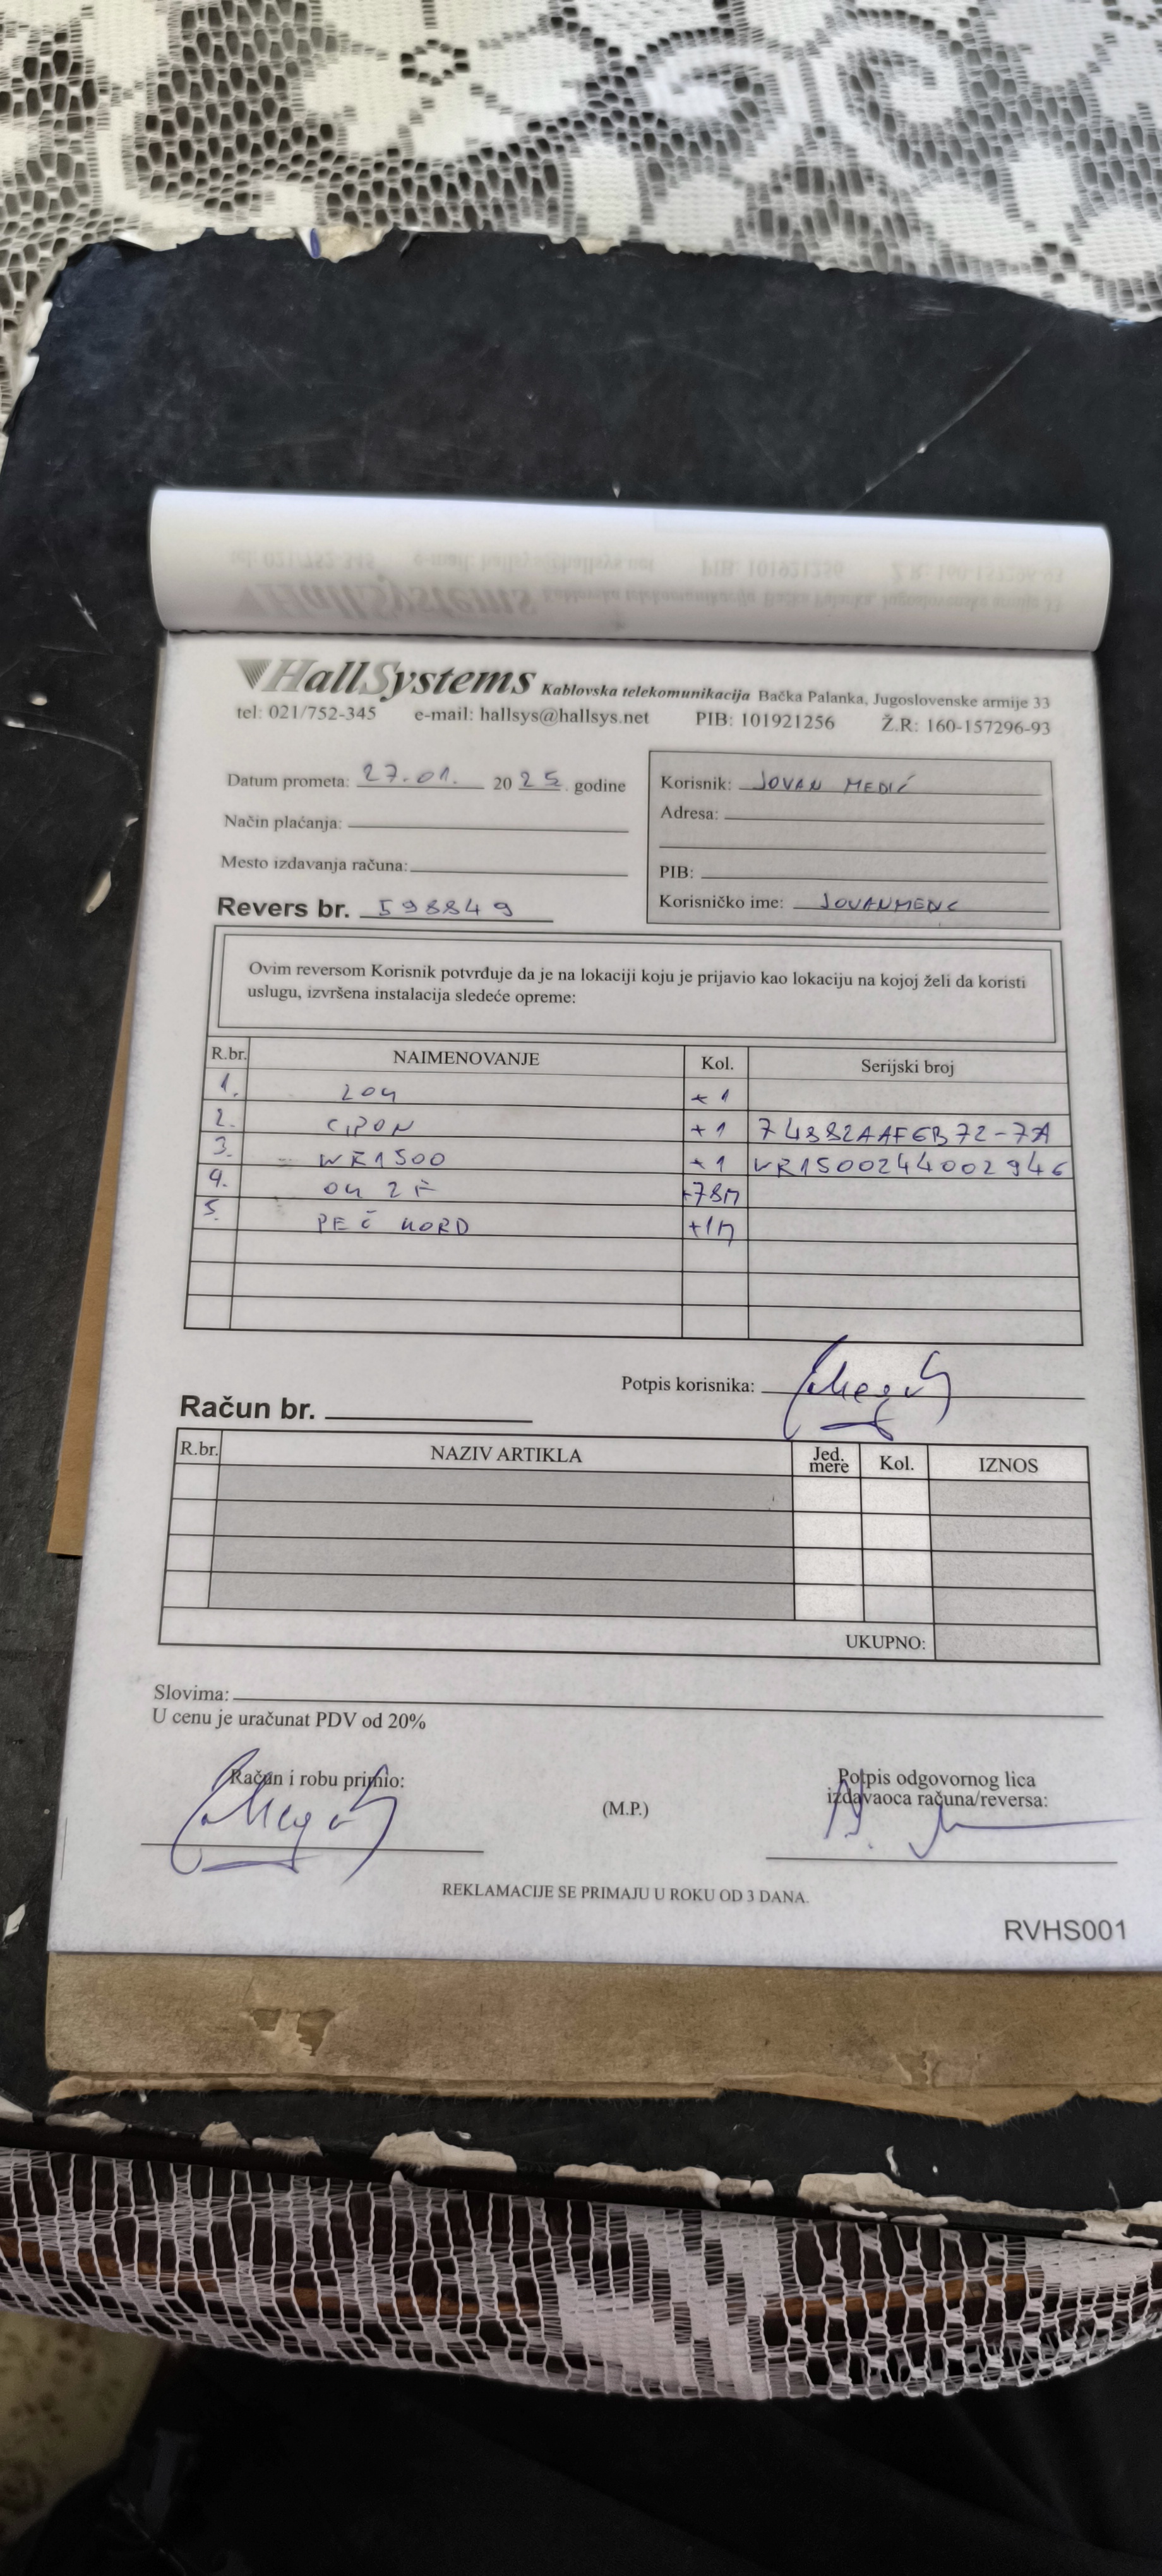 HallSystems Kablovska telekomunikacija Bačka Palanka, Jugoslovenske armije 33
tel: 021/752-345 e-mail: hallsys@hallsys.net PIB: 101921256 Ž.R: 160-157296-93
Datum prometa: 27.01. 2025. godine
Način plaćanja:
Mesto izdavanja računa:
Revers br. 598849
Korisnik: JOVAN MEDIĆ
Adresa:
PIB:
Korisničko ime:
Ovim reversom Korisnik potvrđuje da je na lokaciji koju je prijavio kao lokaciju na kojoj želi da koristi
uslugu, izvršena instalacija sledeće opreme:
R.br. NAIMENOVANJE Kol. Serijski broj
1. +1
2. +1 74882AAF6B72-7A
3. WR1500 +1 WR1500244002946
4. +78M
5. +1M
Potpis korisnika:
Račun br.
R.br. NAZIV ARTIKLA Jed. mere Kol. IZNOS
UKUPNO:
Slovima:
U cenu je uračunat PDV od 20%
Račun i robu primio:
(M.P.)
Potpis odgovornog lica
izdavaoca računa/reversa:
REKLAMACIJE SE PRIMAJU U ROKU OD 3 DANA.
RVHS001